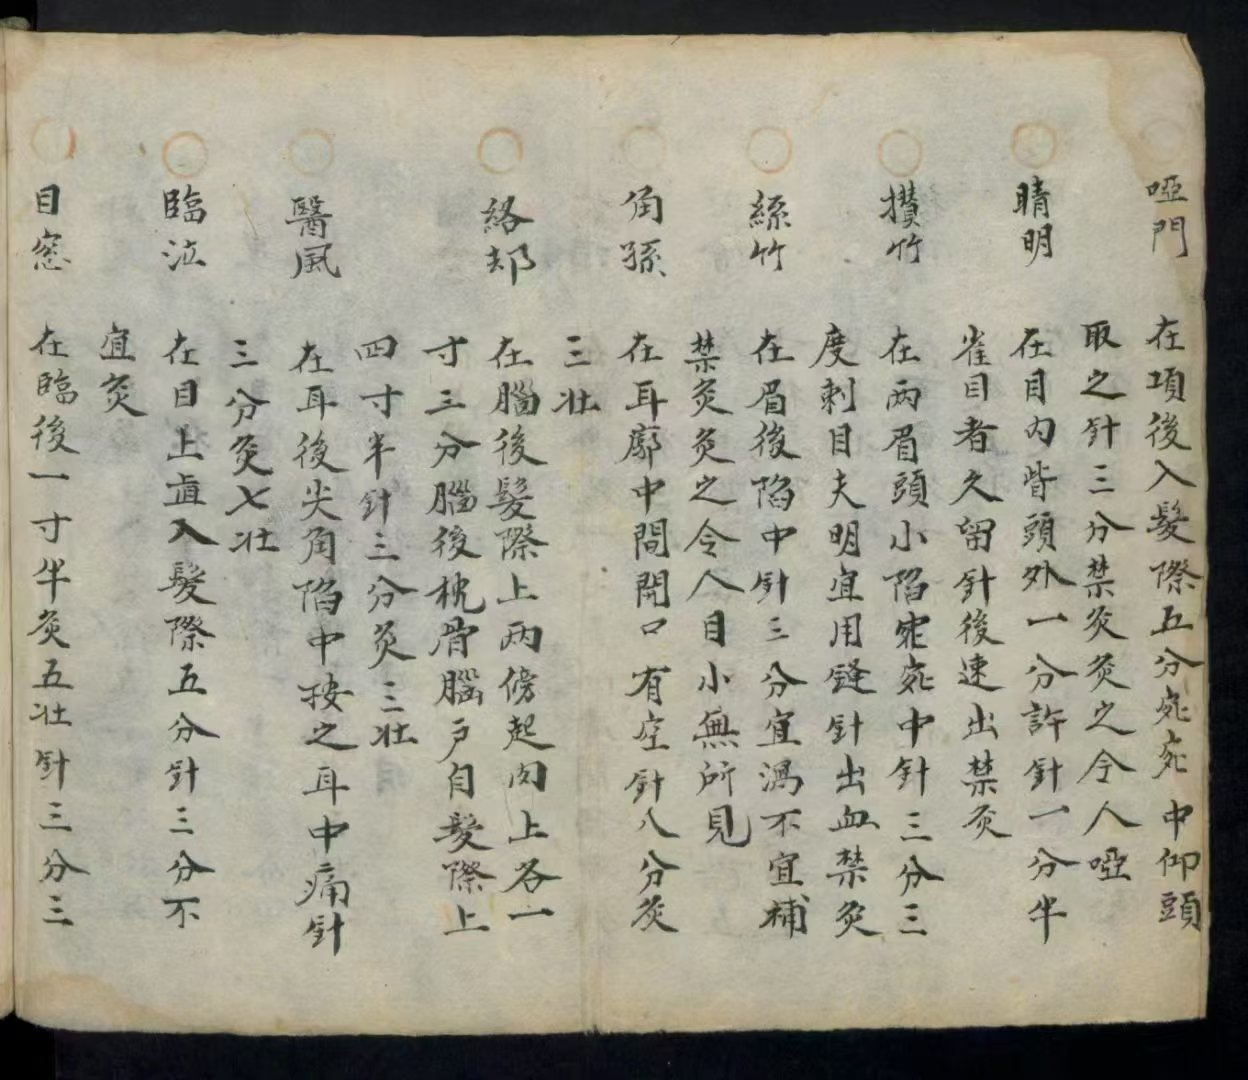 啞門 在項後入髮際五分宛宛中仰頭
取之針三分禁灸灸之令人啞
睛明 在目内眥頭外一分許針一分半
雀目者久留針後速出禁灸
攢竹 在两眉頭小陷宛宛中針三分三
度刺目大明宜用鋒針出血禁灸
絲竹 在眉後陷中針三分宜瀉不宜補
禁灸灸之令人目小無所見
角孫 在耳廓中間開口有空針八分灸
三壯
絡却 在腦後髮際上两傍起肉上各一
寸三分腦後枕骨腦户自髮際上
四寸半針三分灸三壯
醫風 在耳後尖角陷中按之耳中痛針
三分灸七壯
臨泣 在目上直入髮際五分針三分不
宜灸
目窓 在臨後一寸半灸五壯針三分三